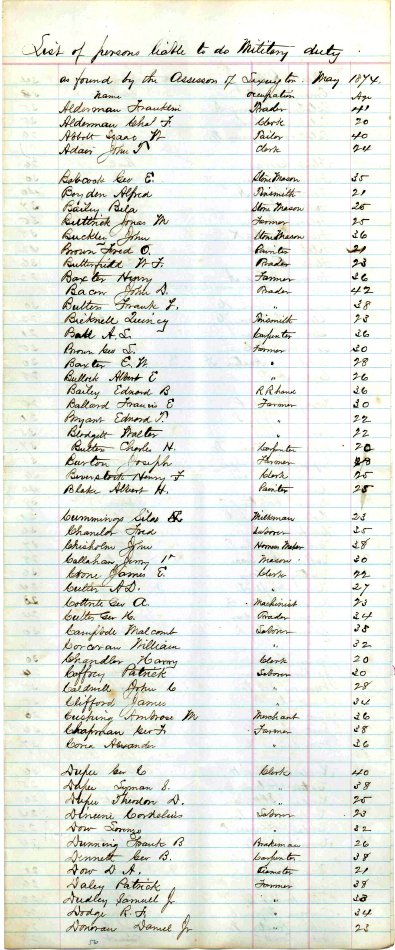 List of persons liable to do Military duty
as found by the Assessors of Lexington May 1874
Name Occupation Age
Alderman Franklin Trader 41
Alderman Chas F. Clerk 20
Abbott Isaac W 40
Adair John T Clerk 24
Babcock Geo E. Stone Mason 35
Borden Alfred Tinsmith 21
Bailey Bela Stone Mason 25
Buttrick Jonas M Farmer 25
Buckley John Stone Mason 36
Brown Fred O. Painter 21
Butterfield W F. Trader 23
Baxter Henry Farmer 36
Bacon John D. Trader 42
Butters Frank F. " 38
Bicknell Quincy Tinsmith 23
Ball A. S. Carpenter 36
Brown Geo S. Farmer 30
Baxter E. W " 28
Bullock Albert E " 26
Bailey Edward B R R hand 36
Ballard Francis E Farmer 30
Bryant Edward T. " 22
Blodgett Walter " 22
Butters Charles H. Carpenter 20
Burton Joseph Farmer
Beverstock Henry F Clerk 25
Blake Albert H. Painter 25
Cummings Silas Milkman 23
Chandler Fred Laborer 35
Chisholm John 38
Callahan Jerry Jr Mason 30
Cone James E. Clerk 22
Cutler A D. " 27
Cottrite Geo A. Machinist 23
Cutler Geo H. Trader 34
Campbele Malcomb Laborer 38
Corcoran William " 32
Chandler Harry Clerk 20
Caffrey Patrick Laborer 30
Caldwell John C " 28
Clifford James " 34
Cushing Ambrose M Merchant 36
Chapman Geo F. Farmer 38
Coria Alexander " 36
Dupee Geo C Clerk 40
Dupee Lyman L. " 38
Dupee Theodore D. " 25
Dineene Cordelius Laborer 23
Dow Lorenzo " 32
Dunning Frank B Brakeman 26
Dennett Geo B. Carpenter 38
Dow D A. Teamster 21
Daley Patrick Farmer 38
Dudley Samuel Jr " 33
Dodge R. F. " 34
Donovan Daniel Jr " 23